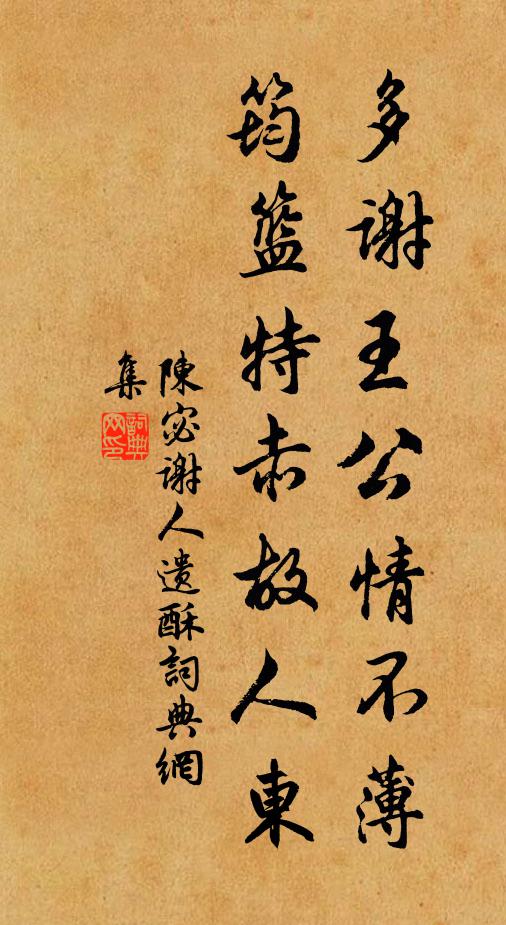 多谢王公情不薄
筠篮特赤故人東
陳宓谢人遺酥詞典網
集
詞典
网印